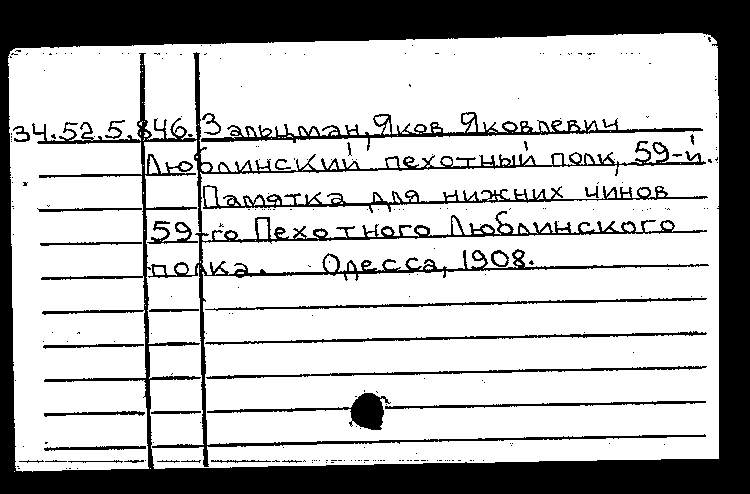 34.52.5.846. Зальцман, Яков Яковлевич
Люблинский пехотный полк, 59-й.
Памятка для нижних чинов
59-го Пехотного Люблинского
полка. Одесса, 1908.